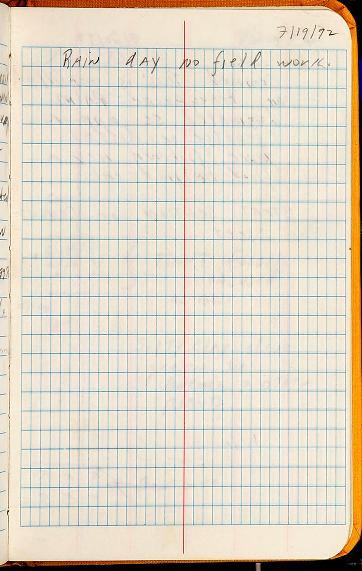 7/19/72
RAIN dAY no field work.